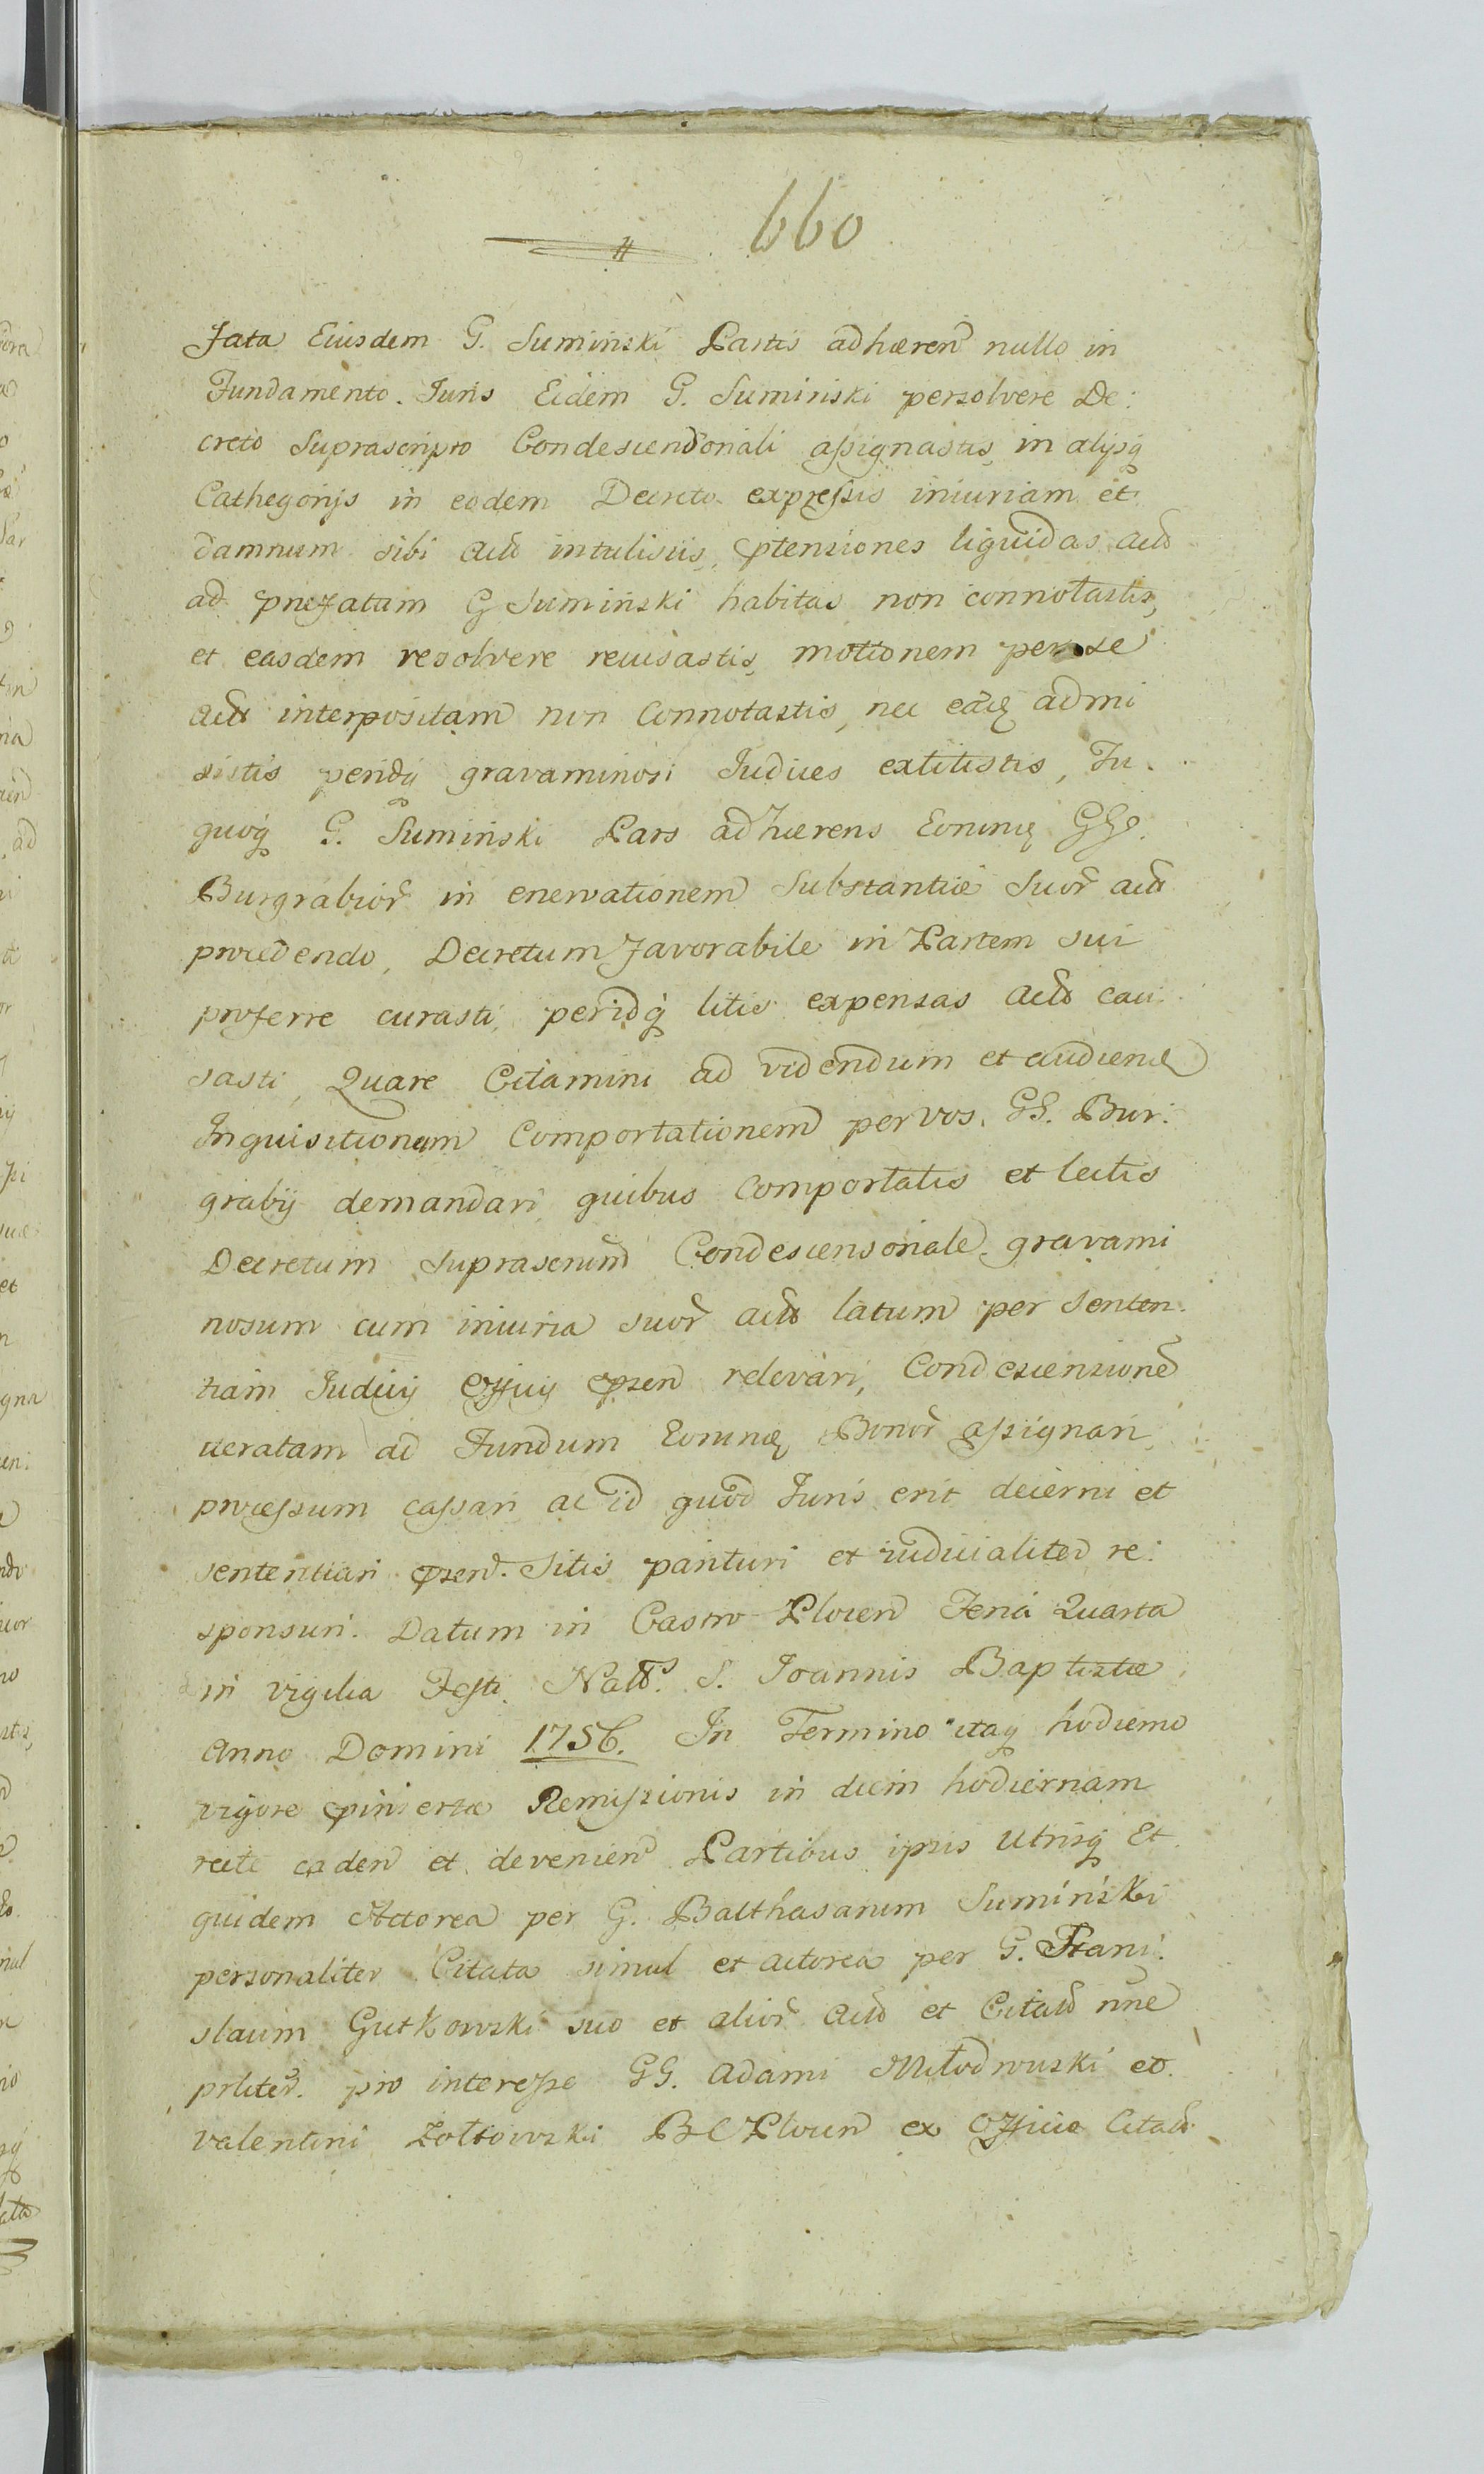 660
fata Eiusdem G. Sumiński Partis adhæren nullo in
Fundamento Juris Eidem G. Suminski persolvere De:
creto Suprascripto Condescensonali assignastis, in alijsq
Cathegorijs in eodem Decreto expressis iniuriam et
damnum sibi actt intulistis, ptensiones liquidas actt
ad præfatum G Sumiński habitas non connotastis,
et easdem resolvere recusastis, motionem per se
actt interpositam non Connotastis, nec admi
sistis peridq gravaminosi Judices extitistis, Tu
quoq G. Sumiński Pars adhærens
Burgrabior in enervationem Substantiæ Suor actt
procedendo, Decretum favorabile in Partem sui
proferre curasti, peridq litis expensas actt cau
sasti, Quare Citamini ad videndum et audiend
Inquisitionum Comportationem per vos GG. Bur:
grabij demandari, quibus Comportatis et lectis
Decretum Suprascrium Condescensoriale gravami
nosum cum iniuria suor actt latum per Senten
tiam Judicij Officij psen relevari, Condescensione
iteratam ad Fundum Bonor assignari,
processum cassari ac id quod Juris erit decerni et
sententiari psen. Sitis parituri et iudicialiter re:
sponsuri. Datum in Castro Plocen Feria Quarta
in vigilia Festi Natt. S. Joannis Baptistæ
Anno Domini 1756. In Termino itaq hodierno
vigore pinsertæ Remissionis in diem hodiernam
recte caden et devenien Partibus ipsis Utrisq Et
quidem Actorea per G. Balthasarum Sumiński
personaliter Citata simul et actorea per G. Stani:
slaum Gutkowski suo et alior actt et Citatt nne
prliter. pro interesse GG. Adami Młodowski et
Valentini Zołtowski B C Plocen ex Officio Citatt